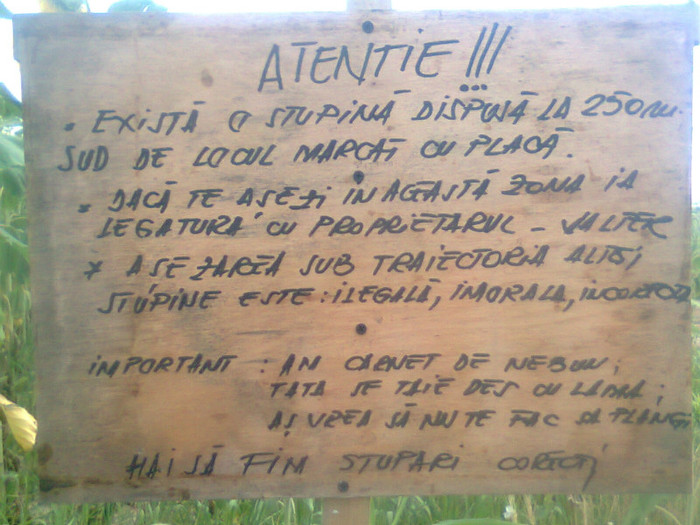 ATENTIE !!!
• EXISTĂ O STUPINĂ DISPUSĂ LA 250m.
SUD DE LOCUL MARCAT CU PLACĂ.
* DACĂ TE ASEZI IN ACEASTĂ ZONA IA
LEGATURĂ CU PROPRIETARUL - VALTER
* ASEZAREA SUB TRAIECTORIA ALTEI
STUPINE ESTE: ILEGALĂ, IMORALA, INCORECTĂ
IMPORTANT : AM CARNET DE NEBUN;
TATA SE TAIE DES CU LAMA;
AȘ VREA SĂ NU TE FAC SA PLANGI
HAI SĂ FIM STUPARI CORECTI